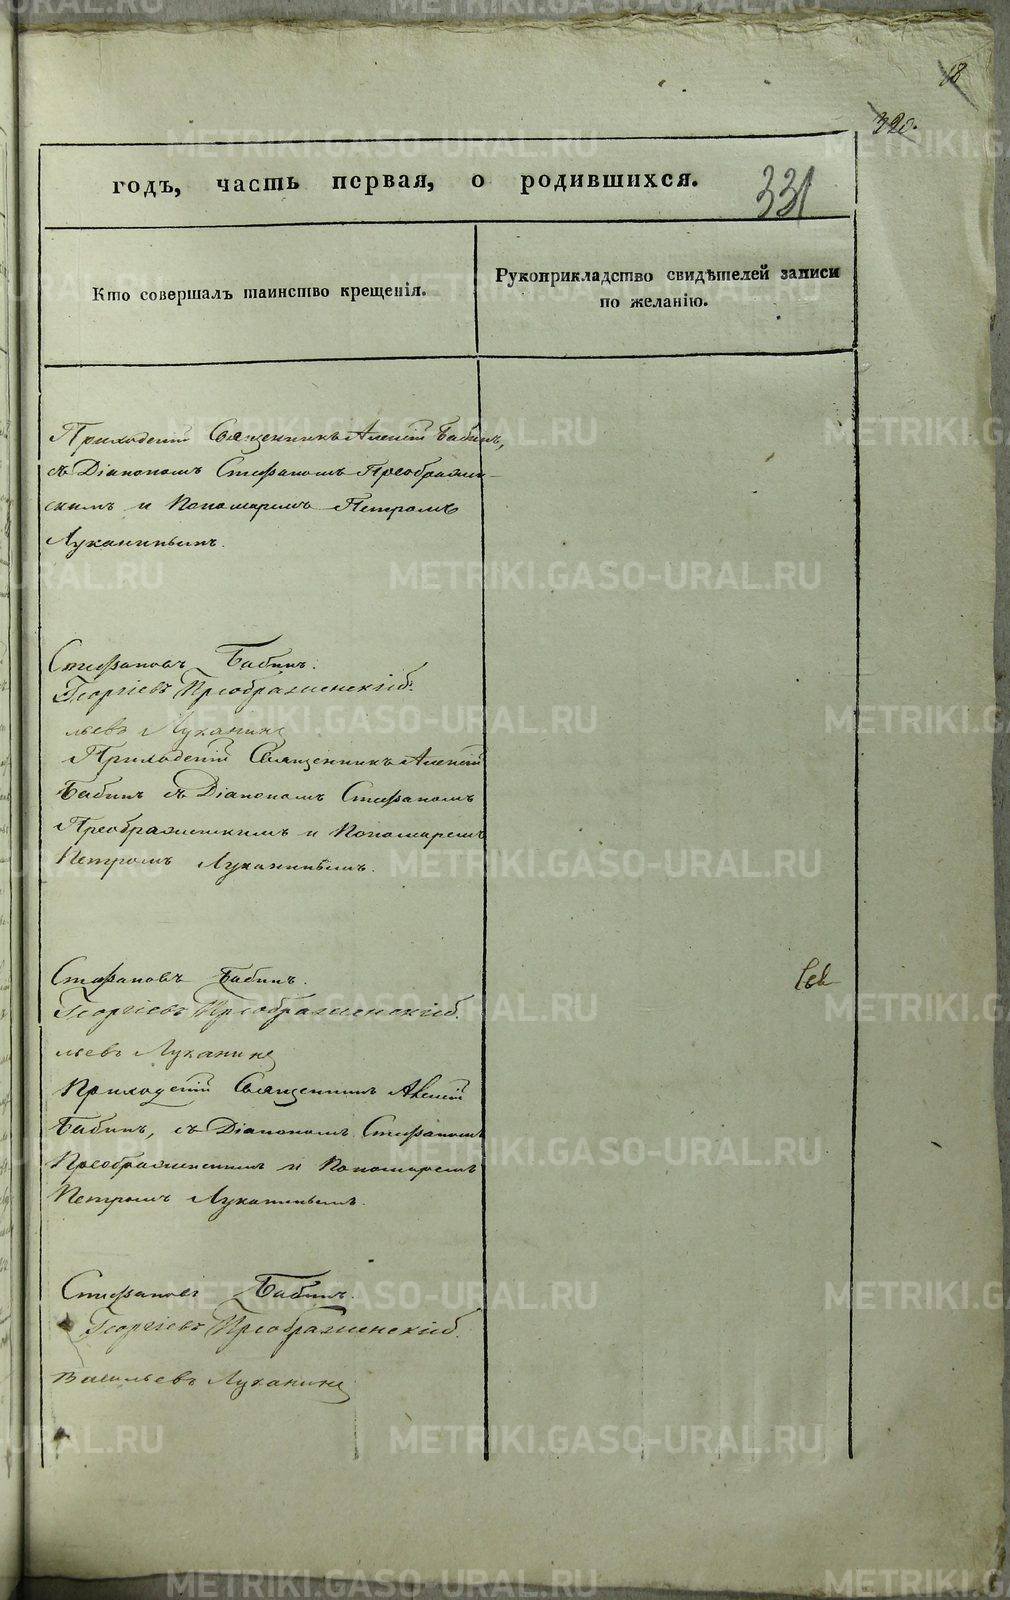 18
320.
годъ, часть первая, о родившихся.
331
Кто совершалъ таинство крещенія.
Рукоприкладство свидѣтелей записи
по желанію.
Приходскій Священникъ Алексій Бабинъ,
съ Діакономъ Стефаномъ Преображен-
скимъ и Пономаремъ Петромъ
Луканинымъ.
Стефановъ Бабинъ.
Георгіевъ Преображенскій.
льевъ Луканинъ
Приходскій Священникъ Алексій
Бабинъ съ Діакономъ Стефаномъ
Преображенскимъ и Пономаремъ
Петромъ Луканинымъ.
Стефановъ Бабинъ.
Георгіевъ Преображенскій.
льевъ Луканинъ
Приходскій Священникъ Алексій
Бабинъ, съ Діакономъ Стефаномъ
Преображенскимъ и Пономаремъ
Петромъ Луканинымъ.
Стефановъ Бабинъ.
Георгіевъ Преображенскій.
Васильевъ Луканинъ
METRIKI.GASO-URAL.RU